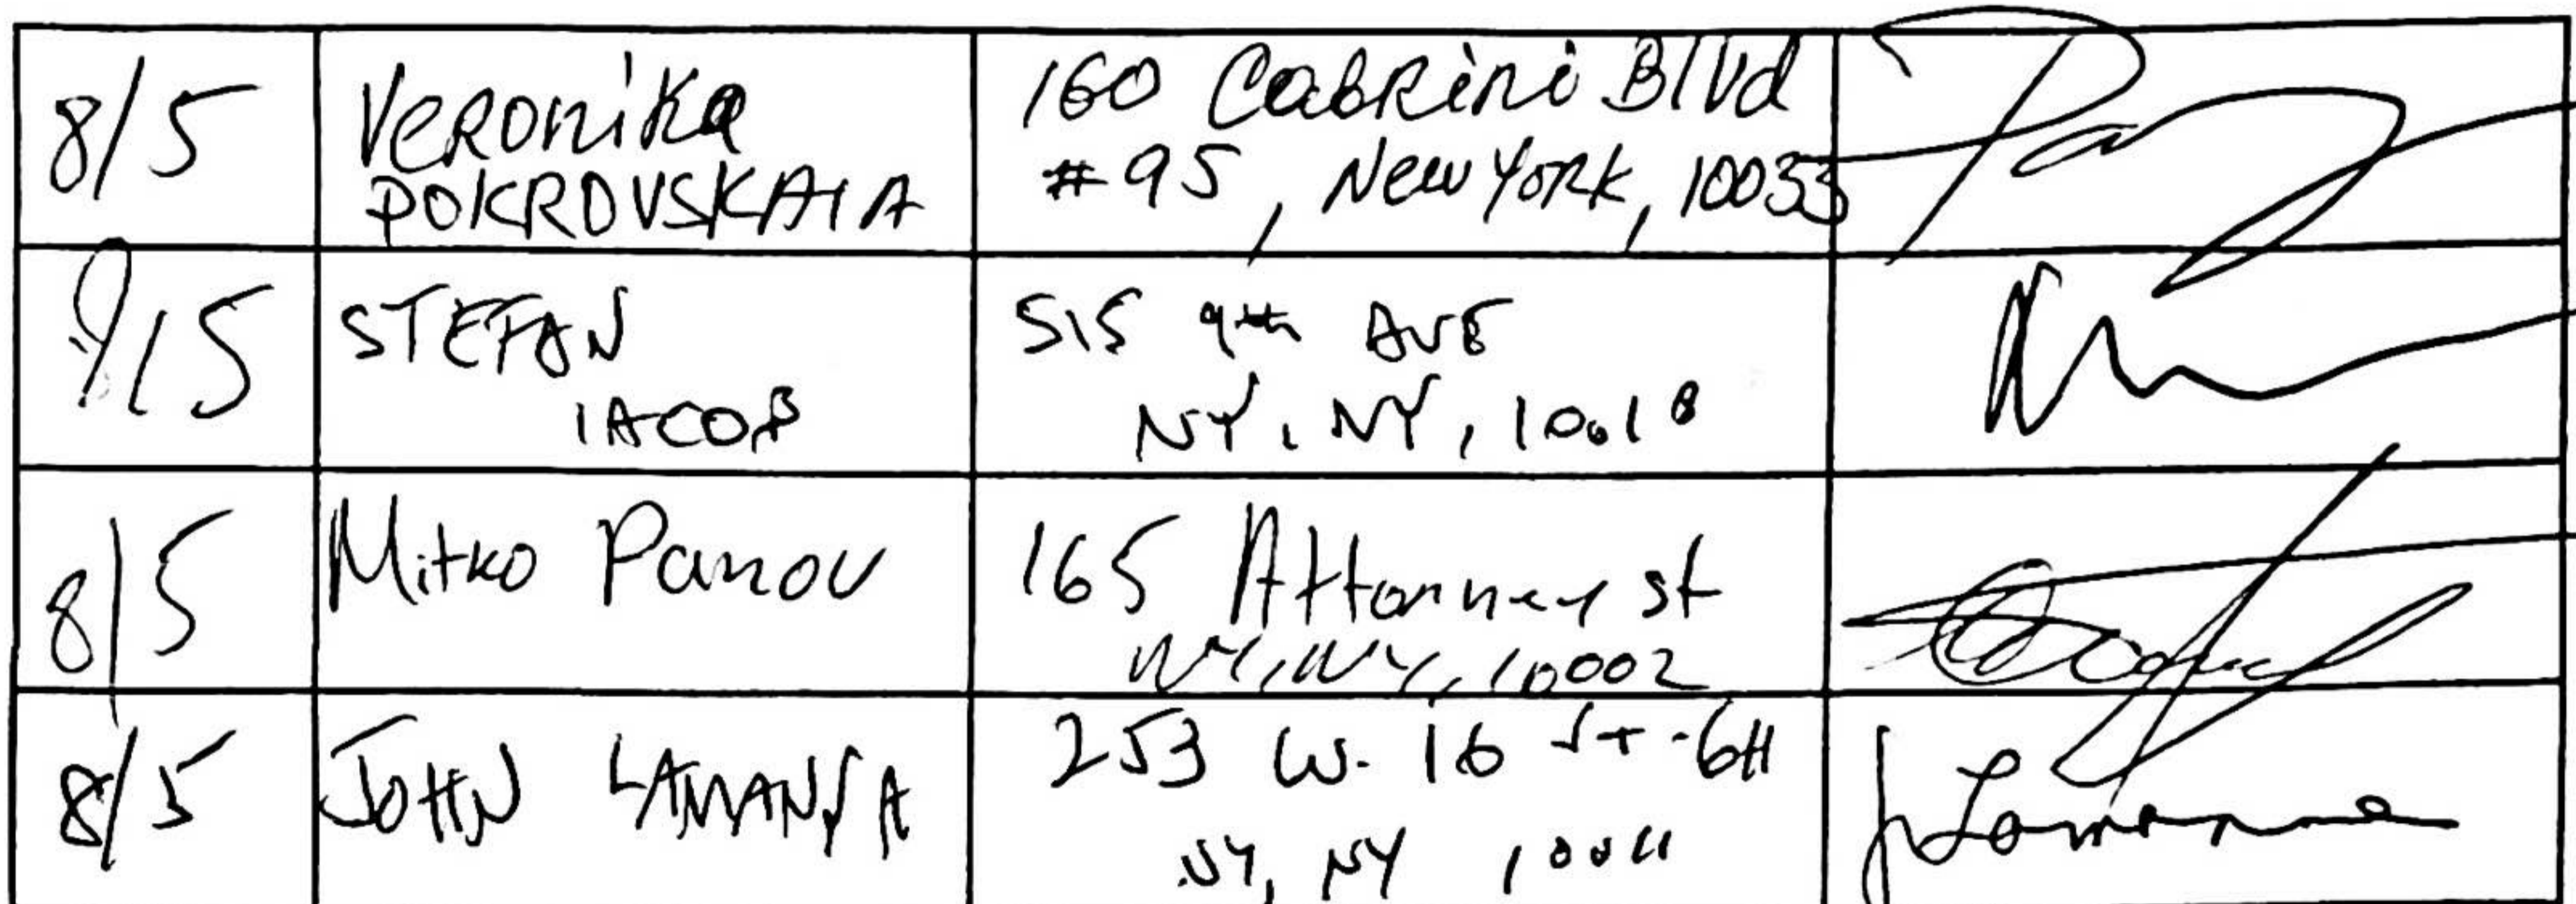 8/5 Veronika POKROVSKAIA 160 Cabrini Blvd
#95, New York, 10033
8/5 STEFAN 515 9th AVE
IACOB NY, NY, 10018
8/5 Mitko Panov 165 Attorney st
NY, NY, 10002
8/5 JOHN LAMANNA 253 W. 16 ST - 6H
NY, NY 10011
J Lamanna